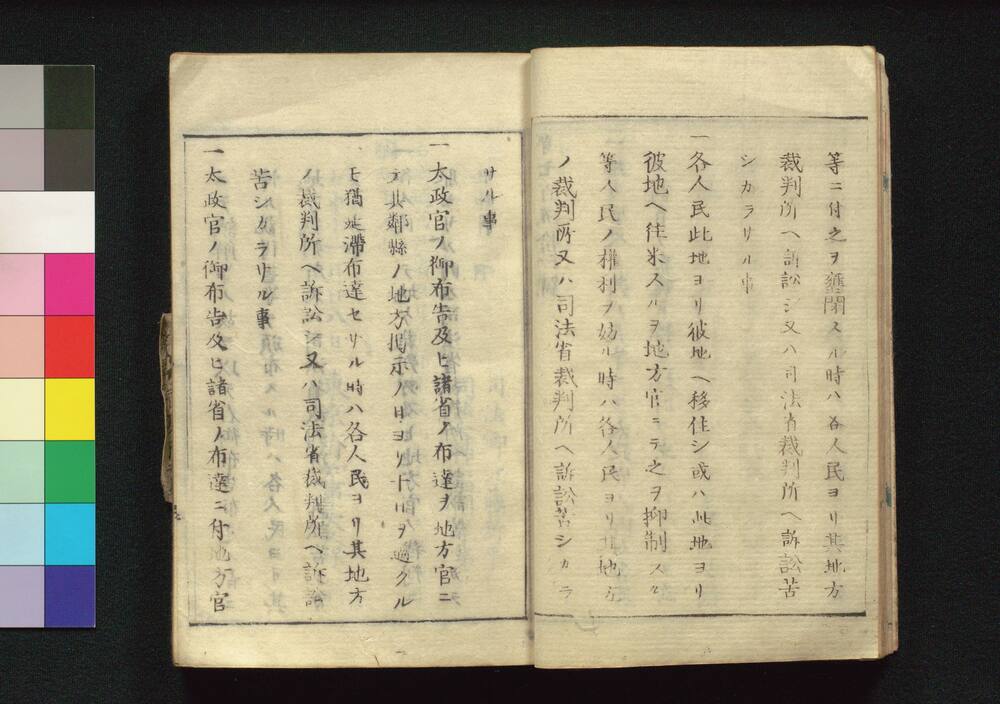 等ニ付之ヲ壅閉スル時ハ各人民ヨリ其地方
裁判所ヘ訴訟シ又ハ司法省裁判所ヘ訴訟苦
シカラサル事
一各人民此地ヨリ彼地ヘ移住シ或ハ此地ヨリ
彼地ヘ往来スルヲ地方官ニテ之ヲ抑制スル
等人民ノ權利ヲ妨ル時ハ各人民ヨリ其地方
ノ裁判所又ハ司法省裁判所ヘ訴訟苦シカラ
サル事
一太政官ノ御布告及ヒ諸省ノ布達ヲ地方官ニ
テ其鄰縣ノ地方掲示ノ日ヨリ十日ヲ過クル
モ猶延滯布達セサル時ハ各人民ヨリ其地方
ノ裁判所ヘ訴訟シ又ハ司法省裁判所ヘ訴訟
苦シカラサル事
一太政官ノ御布告及ヒ諸省ノ布達ニ付地方官